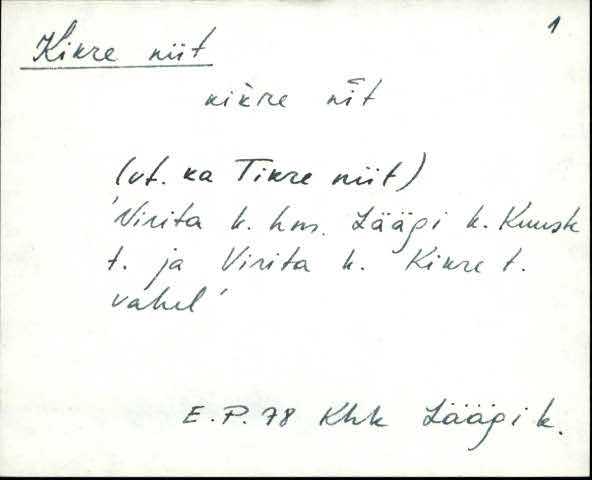 1
Kikre niit
kikre nīt
(vt. ka Tikre niit)
'Virita k. hm. Läägi k. Kuusk
t. ja Virita k. Kikre t.
vahel'
E.P. 78 Khk Läägi k.